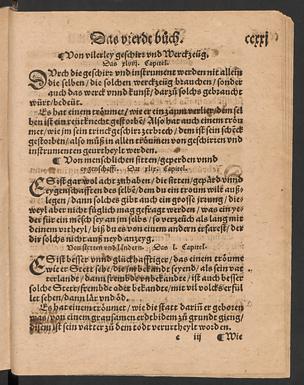 Das vierdt bůch. ccxxj
¶ Von vilerley geschirr vnd Werckzeüg,
Das xlviij. Capitel.
DVrch die geschirr vnd instrument werden nit allein
die selben / die solchen werckzeüg brauchen / sonder
auch das werck vnnd kunst / darzů solchs gebraucht
würt / bedeüt.
Es hat einem tröumet / wie er ein zaum verlür / dem sel
ben ist ein knecht gestorben / Also hat auch einem tröu
met / wie jm sein trinckgeschirr zerbrech / dem ist sein schöck
gestorben / also můß in allen tröumen von geschirren vnd
instrumenten geurtheylt werden.
¶ Von menschlichen sitten / geperden vnnd
eygenschafft. Das xlix. Capitel.
ES ist gar wol acht zů haben / die sitten / gepärd vnnd
eygenschafften der selbe / dem du ein troum wilt auß-
legen / dann solches gibt auch ein grosse jrrung / die-
weyl aber nicht fuglich mag gefragt werden / was ein yeder
für ein mensch sey an jm selbs / so verzeüch als lang mit
deinem vrtheyl / biß du es von einem andern erfarest / der
dir solchs nicht auß neyd anzeyg.
Von stetten vnd ländern. Das l. Capitel.
ES ist besser vnnd glückhafftiger / das einem tröume
wie er Stett sehe / die jm bekandt seyend / als sein vat
terlandt / dann frembde vnbekandte / ist auch besser
solche Stett / frembde oder bekandte / mit vil volcks erfül
let sehen / dann lär vnd öd.
Es hat einem tröumet / wie die statt darin er geboren
was / von einem grausamen erdtbidem zů grundt gieng /
disem ist sein vatter zů dem todt verurtheylt worden.
e iij ¶ Wie